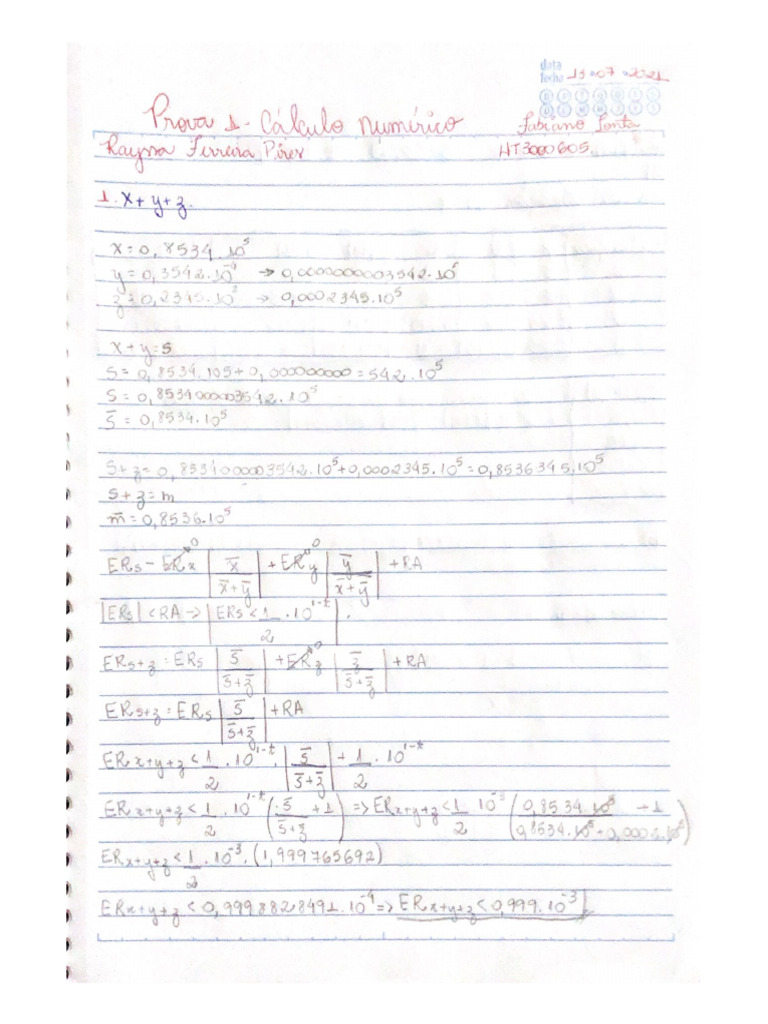 data
fecha 13 07 2021
D S T Q Q S S
D L M M J V S
Prova 1. Cálculo Numérico
Rayssa Ferreira Pires HT3000605
1. x + y + z.
x = 0,8534.10^5
y = 0,3542.10^-4 → 0,0000000003542.10^5
z = 0,2345.10^2 → 0,0002345.10^5
x + y = s
S = 0,8534.105 + 0,000000000 = 542.10^5
S = 0,8534000003542.10^5
S̅ = 0,8534.10^5
S + z = 0,8534000003542.10^5 + 0,0002345.10^5 = 0,8536345.10^5
S + z = m
m̅ = 0,8536.10^5
ERs - ERx^0 | x̅ / x̅ + y̅ | + ERy^0 | y̅ / x̅ + y̅ | + RA
|ERs| < RA → | ERs < 1/2 . 10^1-t |.
ERs+z = ERs | s̅ / s̅ + z̅ | + ERz^0 | z̅ / s̅ + z̅ | + RA
ERs+z = ERs | s̅ / s̅ + z̅ | + RA
ER x+y+z < 1/2 . 10^1-t . | s̅ / s̅ + z̅ | + 1/2 . 10^1-t
ER x+y+z < 1/2 . 10^1-t ( s̅ / s̅ + z̅ + 1 ) => ER x+y+z < 1/2 10^-3 ( 0,8534.10^5 / 0,8534.10^5 + 0,0002.10^5 + 1 )
ER x+y+z < 1/2 . 10^-3 . (1,999765692)
ER x+y+z < 0,9998828491.10^-4 => ER x+y+z < 0,999.10^-3